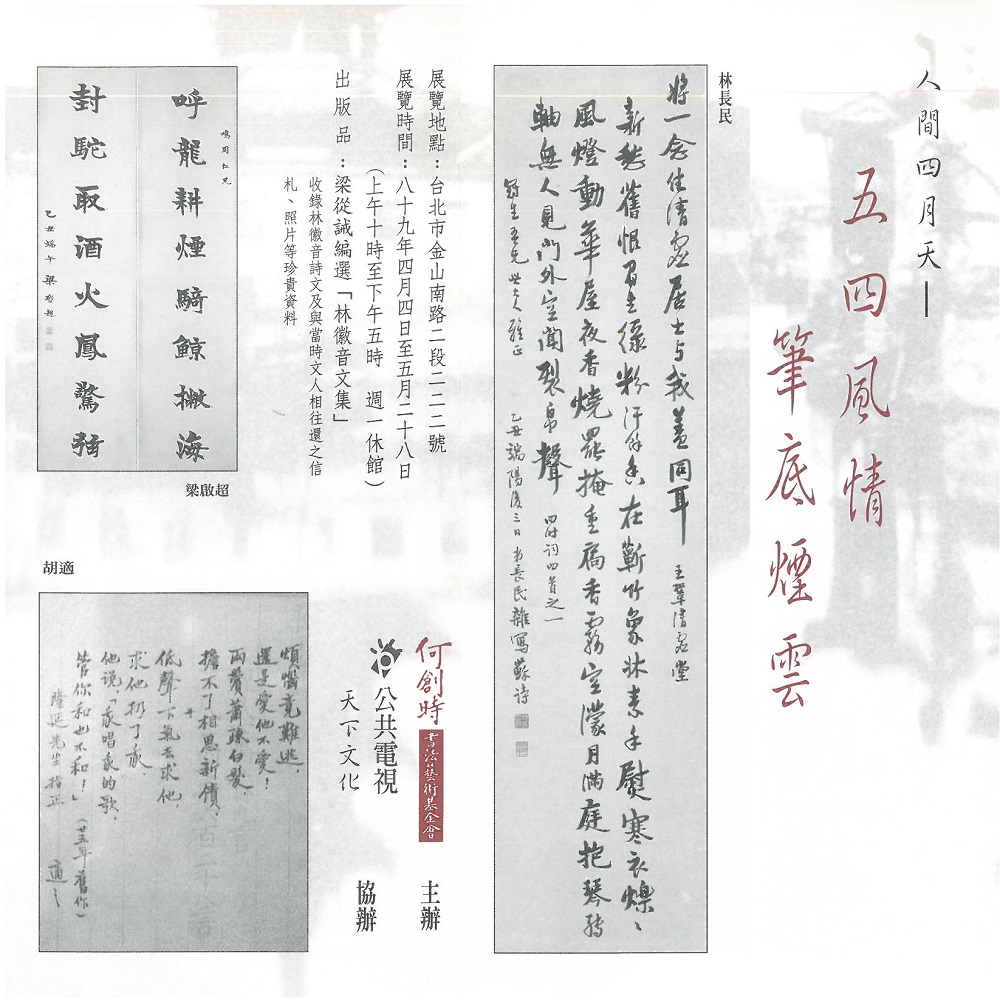 人間四月天—
五四風情
筆底煙雲
林長民
將一念住清虛居士与我盖同耳 王鞏清虛堂
新愁舊恨眉生綠粉汗餘香在蘄竹象牀素手熨寒衣爍ミ
風燈動華屋夜香燒罷掩重扃香霧空濛月滿庭抱琴轉
軸無人見門外空聞裂帛聲 四時詞四首之一
乙丑端陽後三日 長民雜寫蘇詩
展覽地點：台北市金山南路二段二二二號
展覽時間：八十九年四月四日至五月二十八日
（上午十時至下午五時 週一休館）
出版品：梁從誡編選「林徽音文集」
收錄林徽音詩文及與當時文人相往還之信
札、照片等珍貴資料
鳴周仁兄
呼龍耕煙騎鯨撇海
封駝取酒火鳳驚弦
乙丑端午 梁啟超
梁啟超
何創時書法藝術基金會 主辦
公共電視
天下文化
協辦
胡適
煩惱竟難逃，
還是愛他不愛！
兩鬢蕭疎白髮，
擔不了相思新債，
低聲下氣去求他，
求他扔了我。
他說，「我唱我的歌，
管你和也不和！」（廿五年舊作）
隆延先生指正 適之